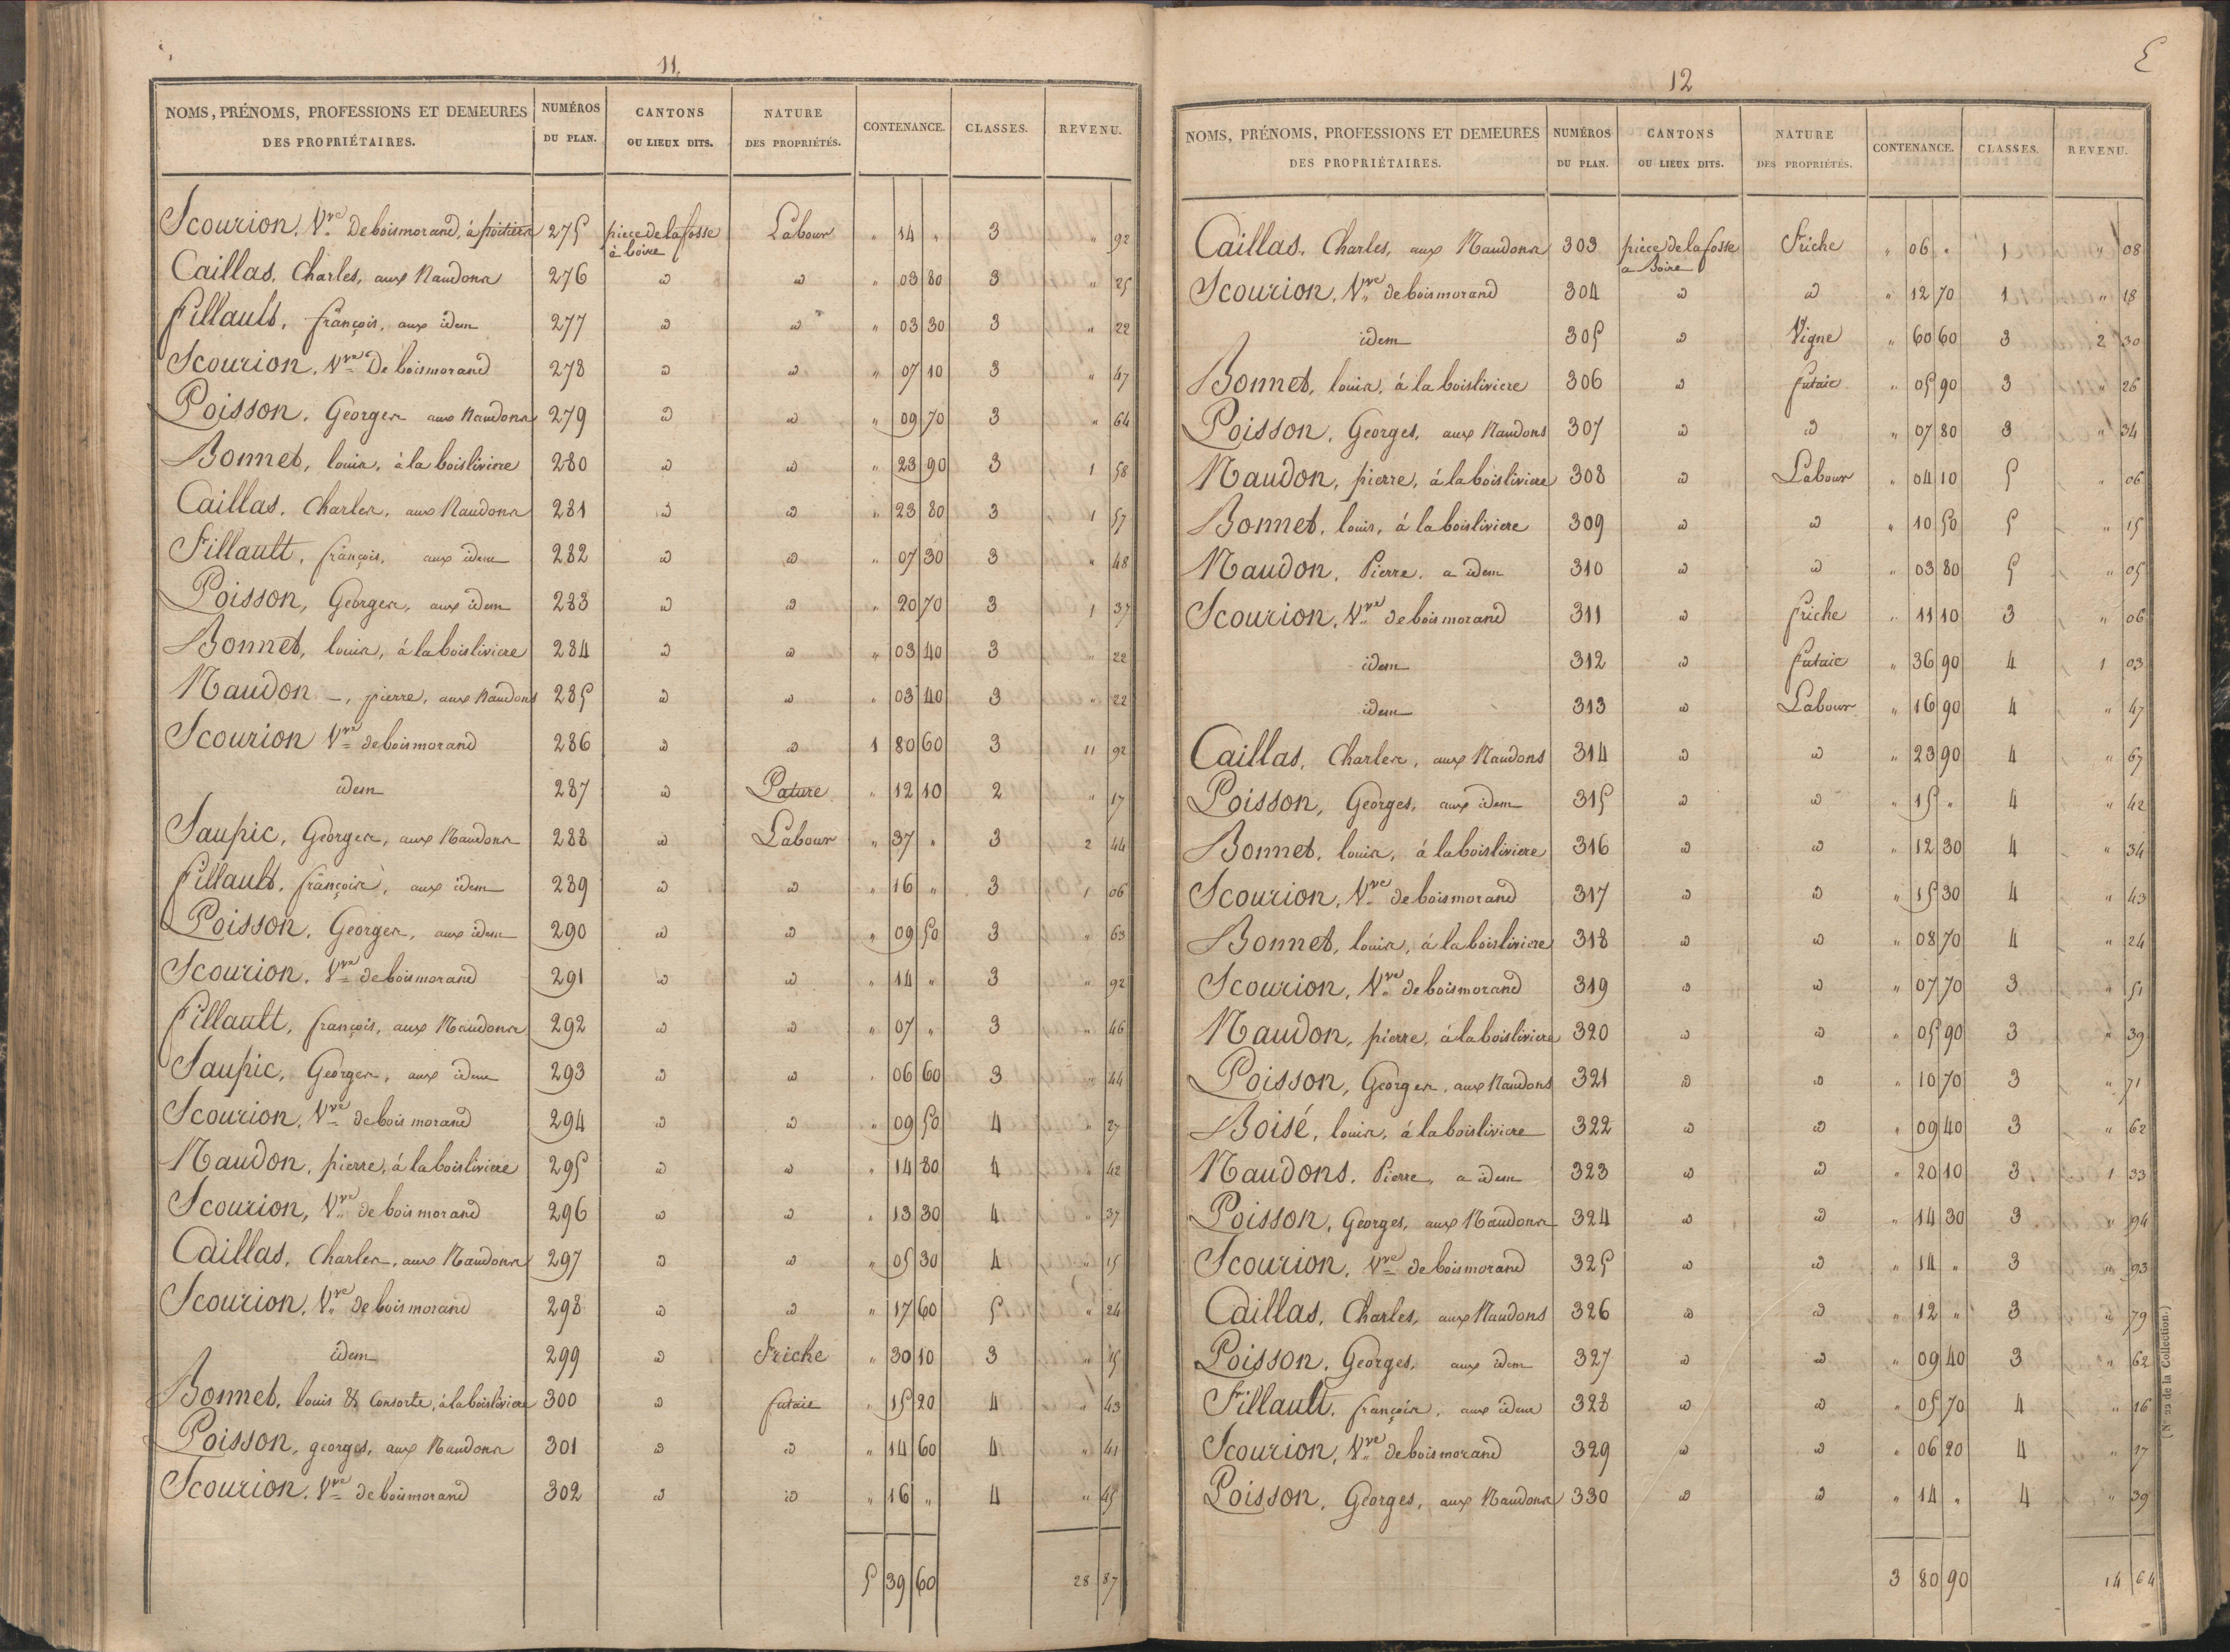 11.
NOMS, PRÉNOMS, PROFESSIONS ET DEMEURES DES PROPRIÉTAIRES. NUMÉROS DU PLAN. CANTONS OU LIEUX DITS. NATURE DES PROPRIÉTÉS. CONTENANCE. CLASSES. REVENU.
Scourion, Vve De boismorand, à poitiers 275 piece de la fosse à boire Labour " 14 " 3 " 92
Caillas, Charles, aux Naudons 276 id id " 03 80 3 " 25
fillault, françois, aux idem 277 id id " 03 30 3 " 22
Scourion, Vve De boismorand 278 id id " 07 10 3 " 47
Poisson, Georges aux Naudons 279 id id " 09 70 3 " 64
Bonnet, louis, à la boisliviere 280 id id " 23 90 3 1 58
Caillas, Charles, aux Naudons 281 id id " 23 80 3 1 57
Fillault, françois, aux idem 282 id id " 07 30 3 " 48
Poisson, Georges, aux idem 283 id id " 20 70 3 1 37
Bonnet, louis, à la boisliviere 284 id id " 03 40 3 " 22
Naudon -, pierre, aux Naudons 285 id id " 03 40 3 " 22
Scourion Vve de boismorand 286 id id 1 80 60 3 11 92
idem 287 id Pature " 12 10 2 " 17
Saupic, Georges, aux Naudons 288 id Labour " 37 " 3 2 44
fillault, françois, aux idem 289 id id " 16 " 3 1 06
Poisson, Georges, aux idem 290 id id " 09 50 3 " 63
Scourion, Vve de boismorand 291 id id " 14 " 3 " 92
fillault, françois, aux Naudons 292 id id " 07 " 3 " 46
Saupic, Georges, aux idem 293 id id " 06 60 3 " 44
Scourion, Vve de bois morand 294 id id " 09 50 4 " 27
Naudon, pierre, à la boisliviere 295 id id " 14 80 4 " 42
Scourion, Vve de bois morand 296 id id " 13 30 4 " 37
Caillas, Charles, aux Naudons 297 id id " 05 30 4 " 15
Scourion, Vve de bois morand 298 id id " 17 60 5 " 24
idem 299 id Friche " 30 10 3 " 15
Bonnet, louis & Consorts, à la boisliviere 300 id futaie " 15 20 4 " 43
Poisson, georges, aux Naudons 301 id id " 14 60 4 " 41
Scourion, Vve de boismorand 302 id id " 16 " 4 " 45
5 39 60 28 87
12
E
NOMS, PRÉNOMS, PROFESSIONS ET DEMEURES DES PROPRIÉTAIRES. NUMÉROS DU PLAN. CANTONS OU LIEUX DITS. NATURE DES PROPRIÉTÉS. CONTENANCE. CLASSES. REVENU.
Caillas, Charles, aux Naudons 303 piece de la fosse a Boire Friche " 06 " 1 " 08
Scourion, Vve de boismorand 304 id id " 12 70 1 " 18
idem 305 id Vigne " 60 60 3 2 30
Bonnet, louis, à la boisliviere 306 id futaie " 05 90 3 " 26
Poisson, Georges, aux Naudons 307 id id " 07 80 3 " 34
Naudon, pierre, à la boisliviere 308 id Labour " 04 10 5 " 06
Bonnet, louis, à la boisliviere 309 id id " 10 50 5 " 15
Naudon, Pierre, a idem 310 id id " 03 80 5 " 05
Scourion, Vve de bois morand 311 id friche " 11 10 3 " 06
idem 312 id futaie " 36 90 4 1 03
idem 313 id Labour " 16 90 4 " 47
Caillas, Charles, aux Naudons 314 id id " 23 90 4 " 67
Poisson, Georges, aux idem 315 id id " 15 " 4 " 42
Bonnet, louis, à la boisliviere 316 id id " 12 30 4 " 34
Scourion, Vve de boismorand 317 id id " 15 30 4 " 43
Bonnet, louis, à la boisliviere 318 id id " 08 70 4 " 24
Scourion, Vve de boismorand 319 id id " 07 70 3 " 51
Naudon, pierre, à la boisliviere 320 id id " 05 90 3 " 39
Poisson, Georges, aux Naudons 321 id id " 10 70 3 " 71
Boisé, louis, à la boisliviere 322 id id " 09 40 3 " 62
Naudons, Pierre, a idem 323 id id " 20 10 3 1 33
Poisson, Georges, aux Naudons 324 id id " 14 30 3 " 94
Scourion, Vve de boismorand 325 id id " 14 " 3 " 93
Caillas, Charles, aux Naudons 326 id id " 12 " 3 " 79
Poisson, Georges, aux idem 327 id id " 09 40 3 " 62
Fillault, françois, aux idem 328 id id " 05 70 4 " 16
Scourion, Vve de boismorand 329 id id " 06 20 4 " 17
Poisson, Georges, aux Naudons 330 id id " 14 " 4 " 39
3 80 90 14 64
(N° 22 de la Collection.)